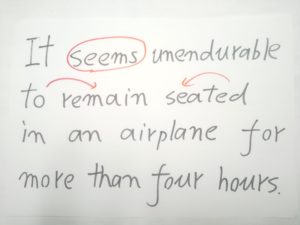 It seems unendurable
to remain seated
in an airplane for
more than four hours.